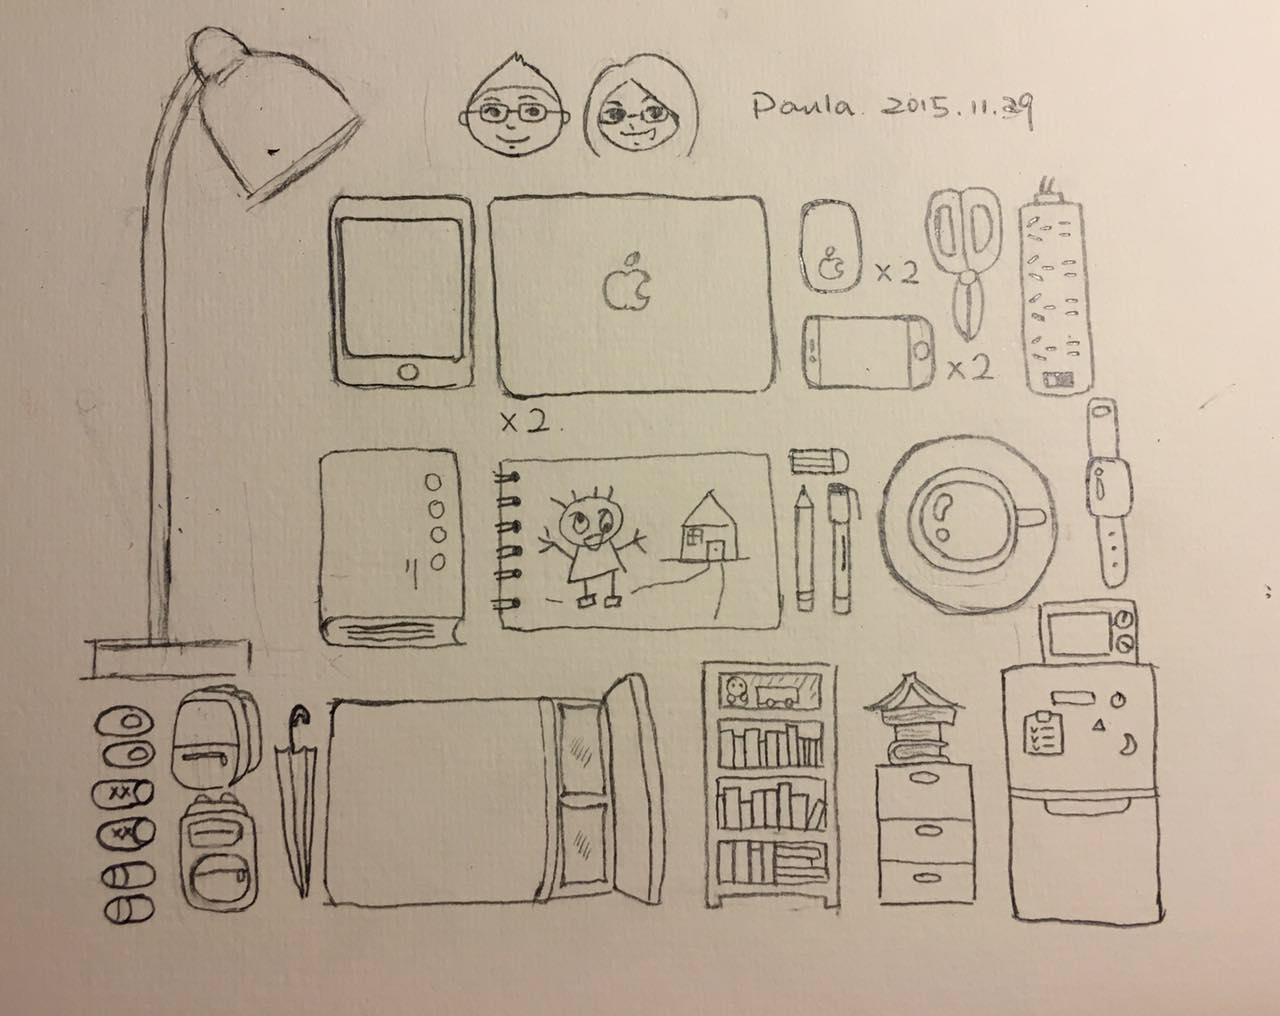 Paula. 2015.11.29
x2
x2
x2.